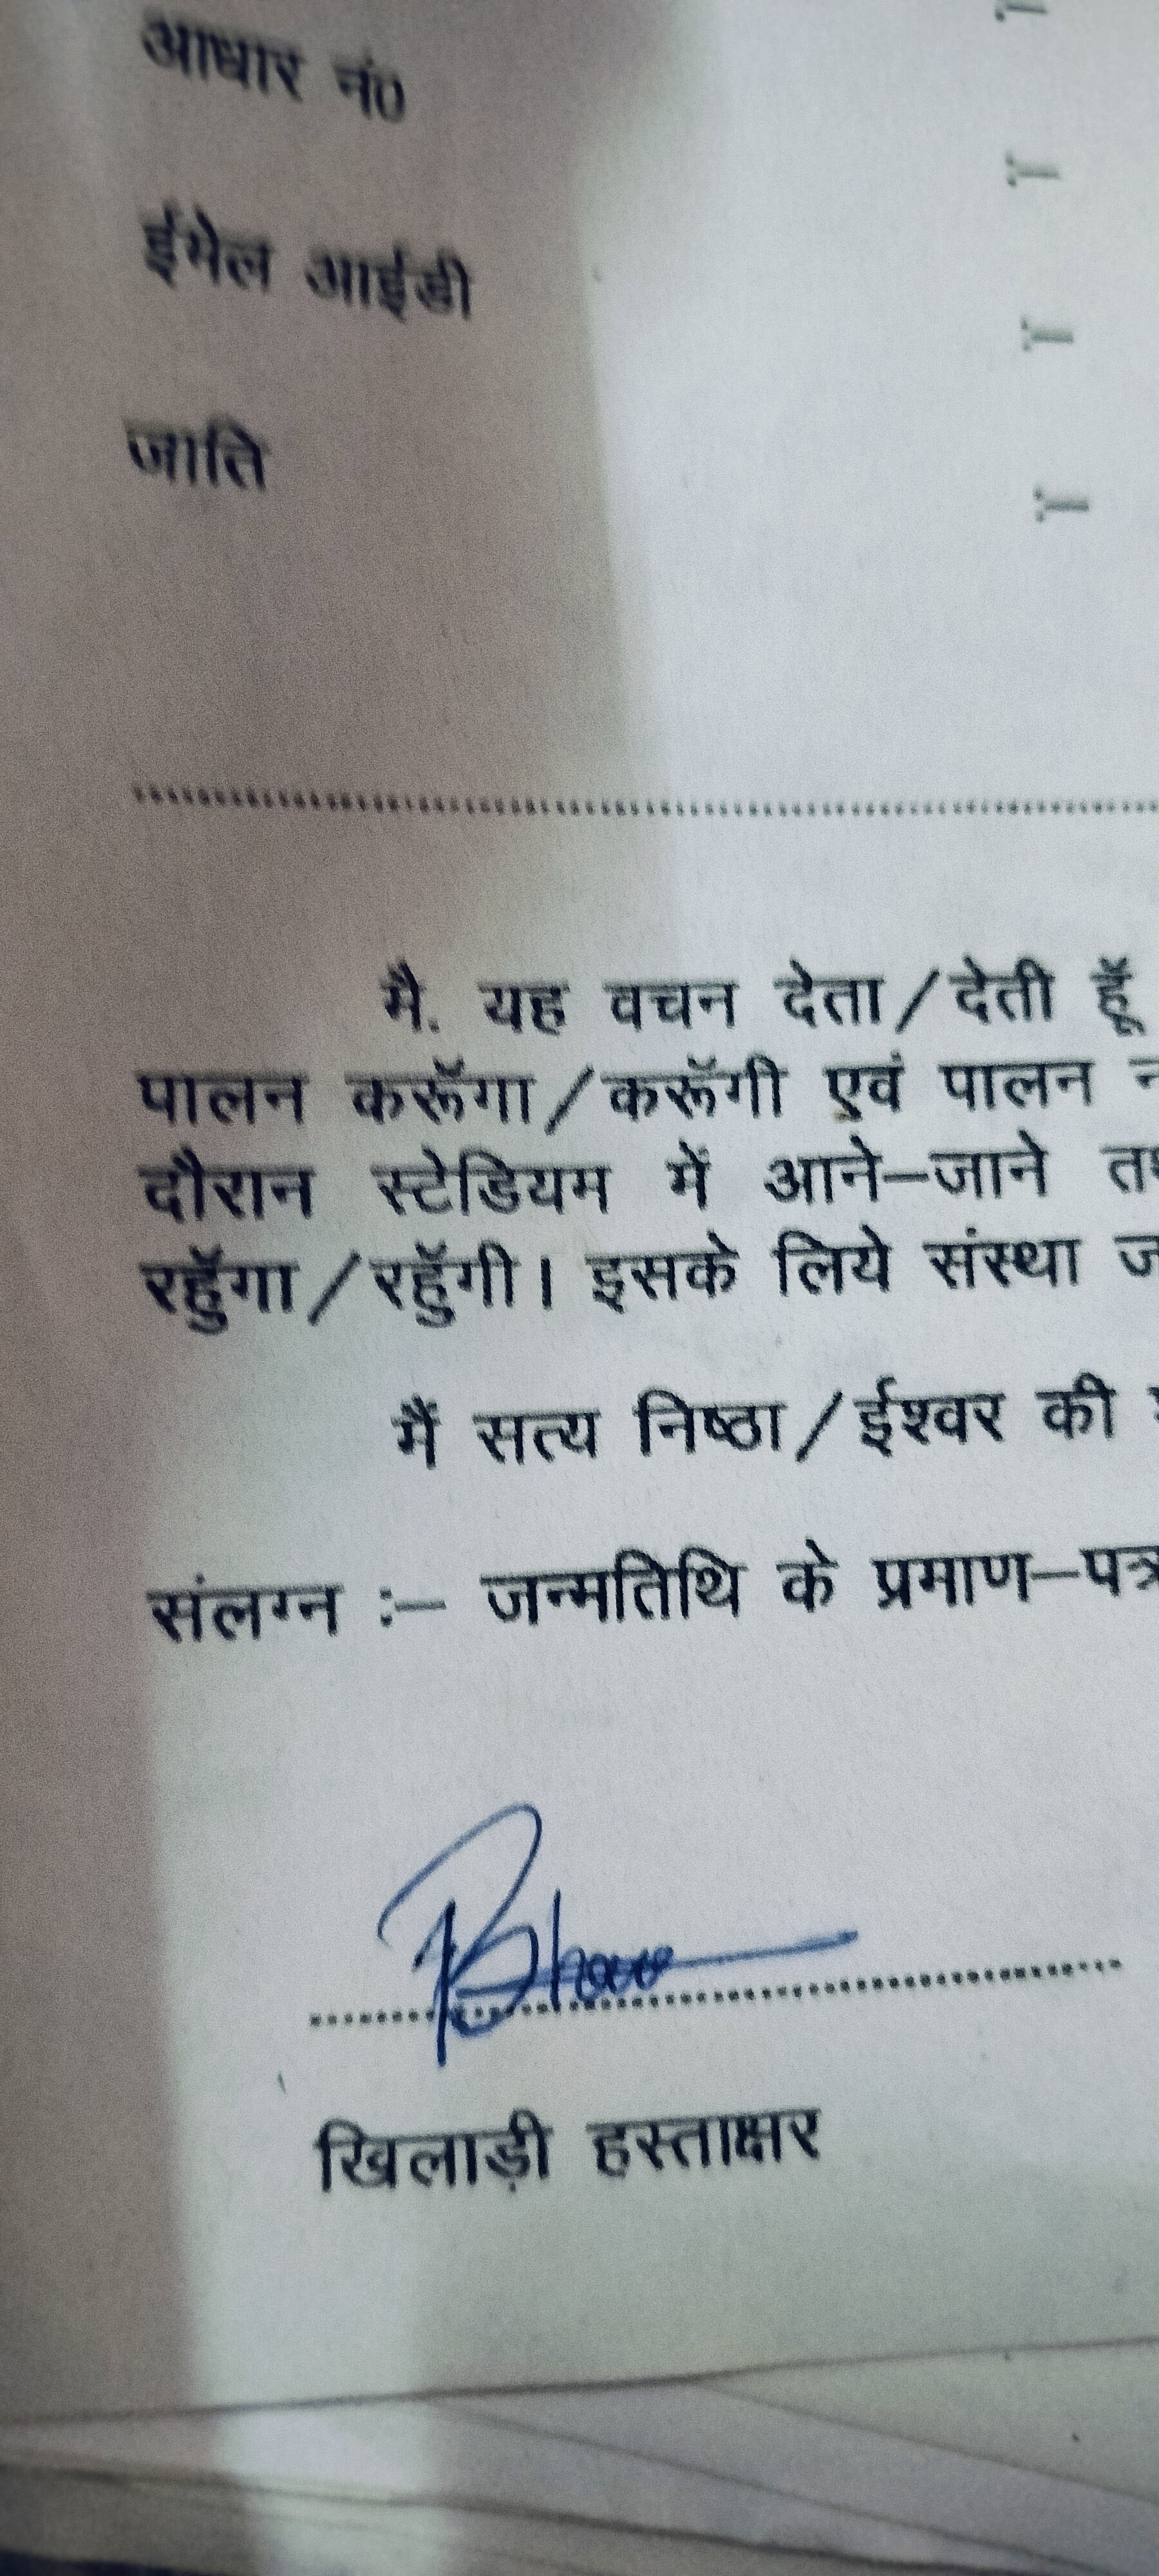 आधार नं0 :-
ईमेल आईडी :-
जाति :-
मै. यह वचन देता/देती हूॅ
पालन करूॅगा/करूॅगी एवं पालन
दौरान स्टेडियम में आने-जाने
रहुॅगा/रहुॅगी। इसके लिये संस्था
मैं सत्य निष्ठा/ईश्वर की
संलग्न :- जन्मतिथि के प्रमाण-पत्र
खिलाड़ी हस्ताक्षर